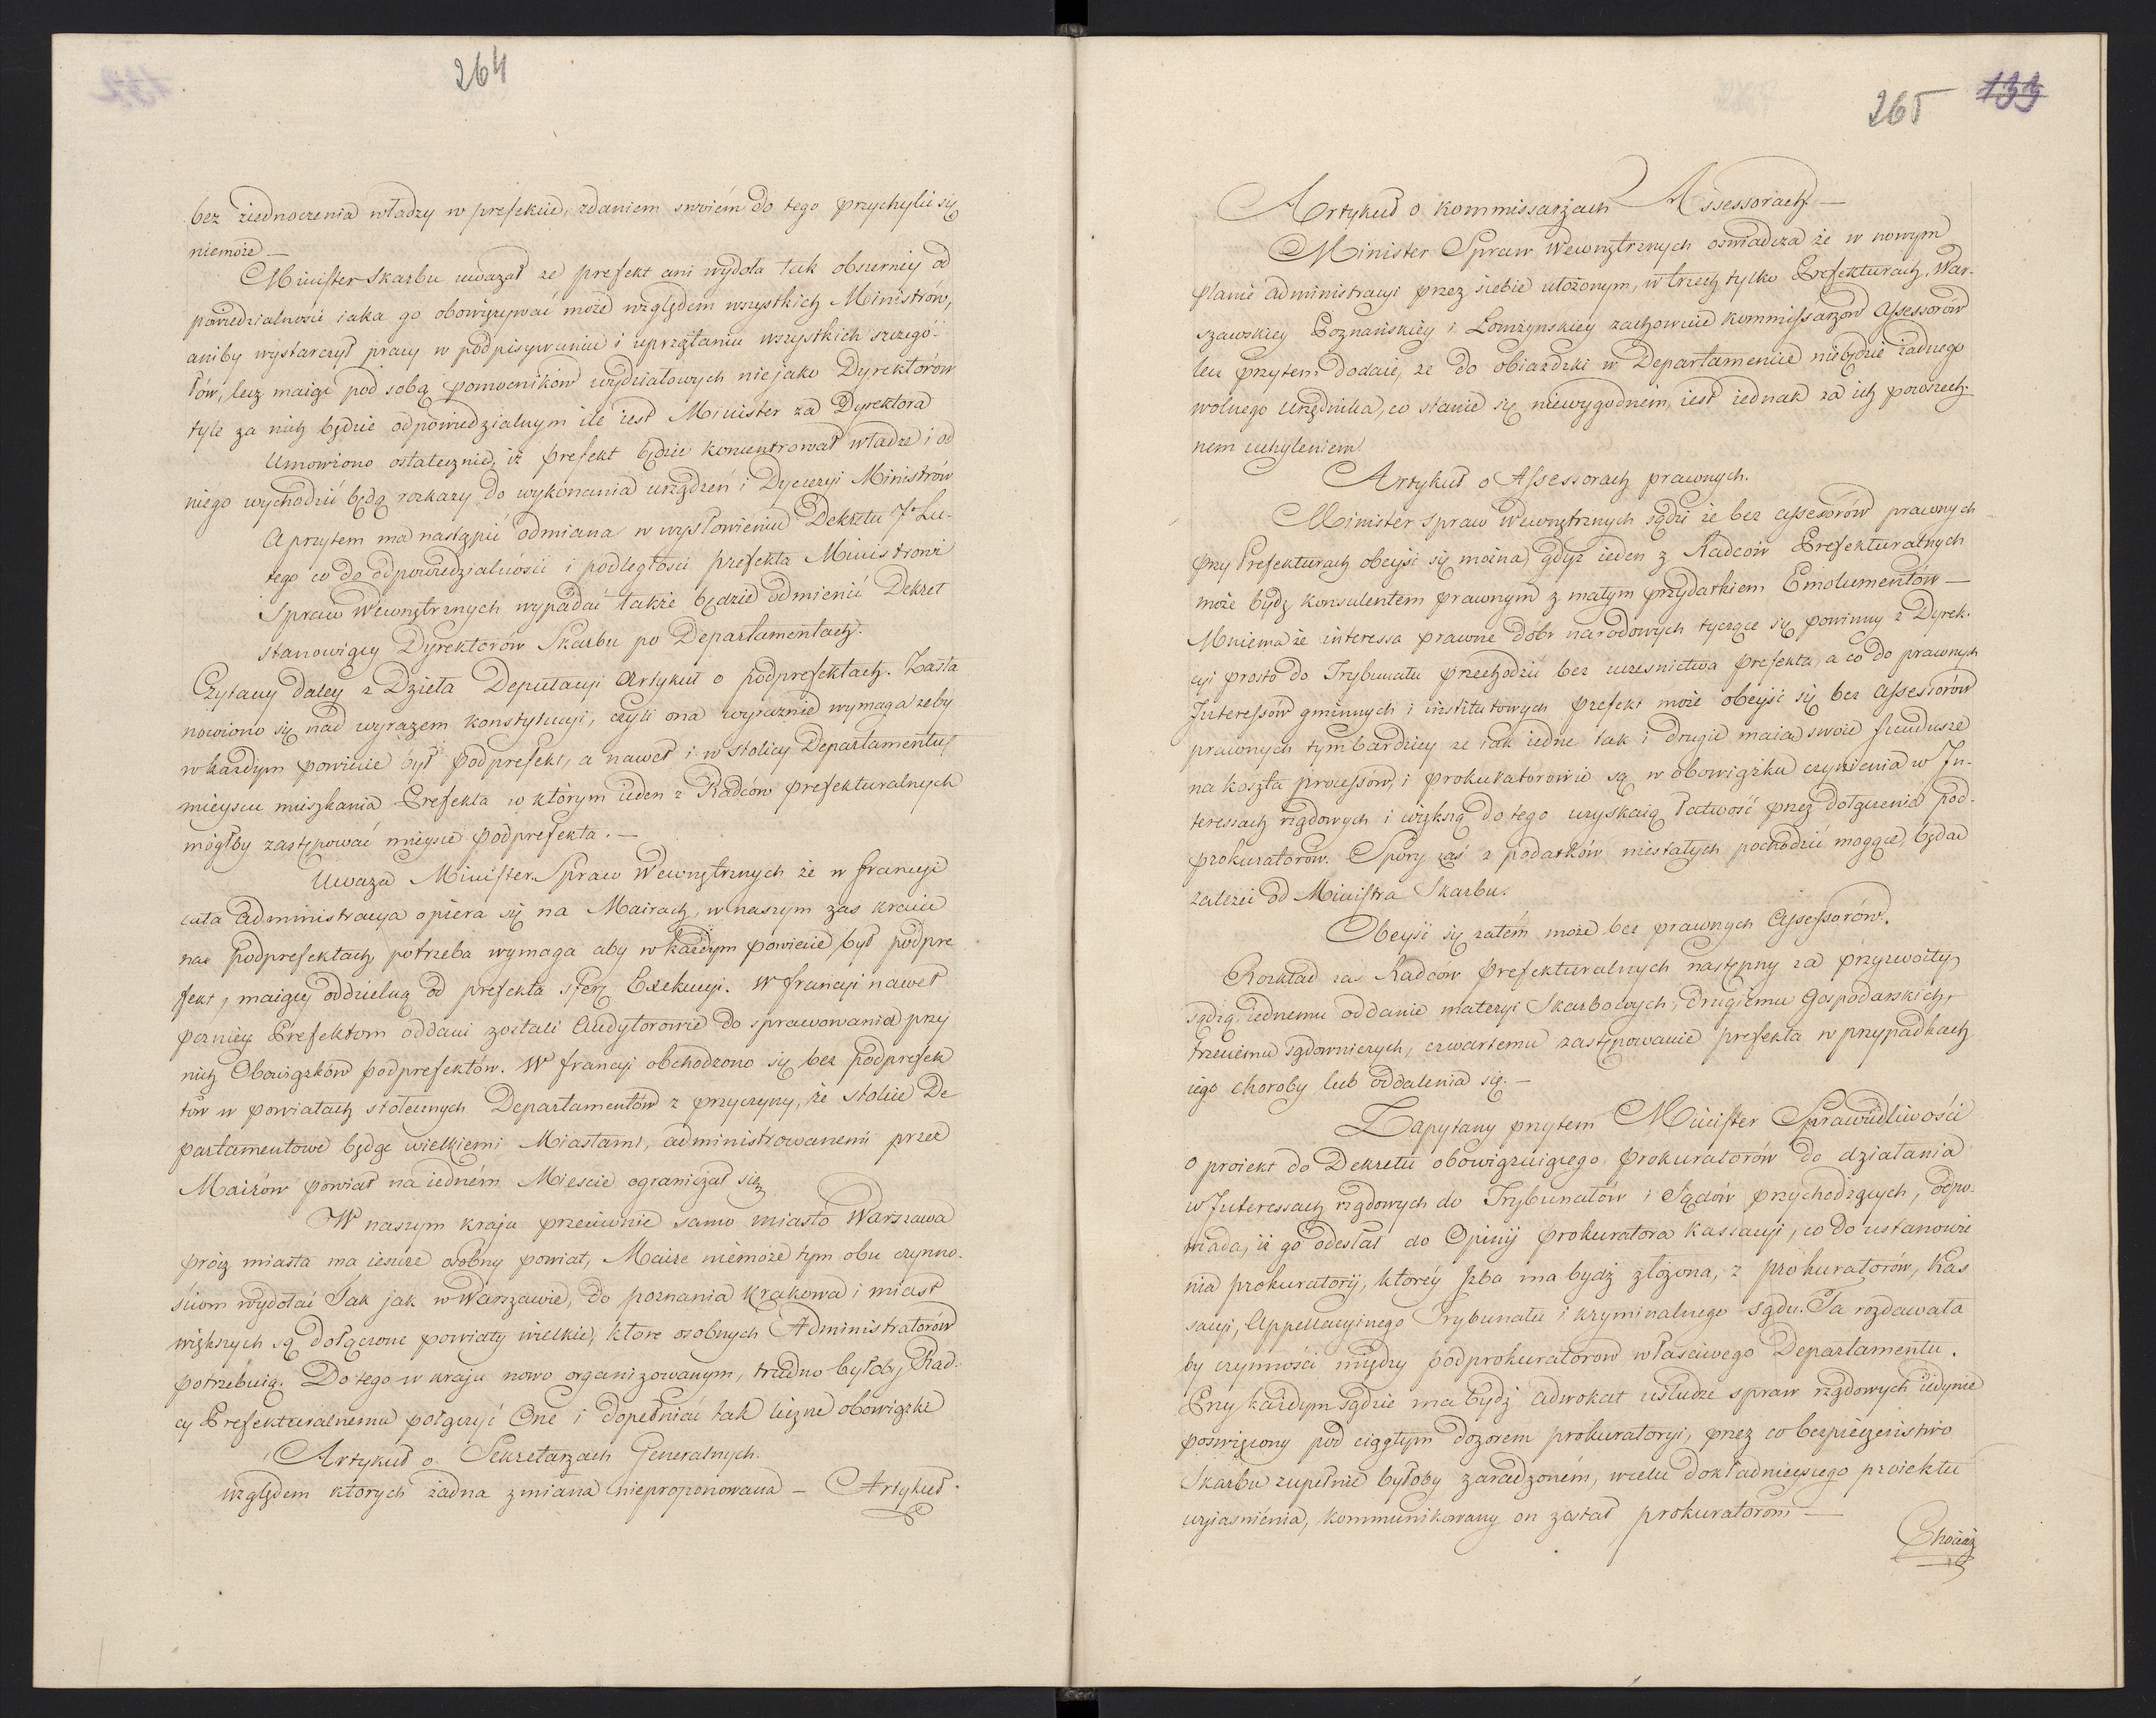 264
bez ziednoczenia władzy w prefekcie, zdaniem swoiém do tego przychylić się
niemoże —
Minister Skarbu uważał że prefekt ani wydoła tak obszerney od
powiedzialności iaka go obowięzywać może względem wszystkich Ministrów,
aniby wystarczył pracy w podpisywaniu i uprzątaniu wszystkich szczegó-
łów, lecz maiąc pod sobą pomocników wydziałowych niejako Dyrektorów
tyle za nich będzie odpowiedzialnym ile iest Minister za Dyrektora
Umowiono ostatecznie, iż prefekt będzie koncentrował władze i od
niego wychodzić będą rozkazy do wykonania urządzeń i Dycezyi Ministrów
A przytem ma nastąpić odmiana w wysłowieniu Dekretu 7. Lu-
tego co do odpowiedzialności i podległości prefekta Ministrowi
Spraw Wewnętrznych wypadać także będzie odmienić Dekret
stanowiący Dyrektorów Skarbu po Departamentach.
Czytany daley z Dzieła Deputacyi Artykuł o podprefektach. Zasta
nowiono się nad wyrazem konstytucyi, czyli ona wyraznie wymaga żeby
w każdym powiecie był podprefekt, a nawet i w stolicy Departamentu
mieyscu mieszkania Prefekta w którym ieden z Radców prefekturalnych
mógłby zastępować mieysce podprefekta. —
Uważa Minister Spraw Wewnętrznych że w francyi
cała administracya opiera się na Mairach, w naszym zas kraiu
na podprefektach, potrzeba wymaga aby w każdym powiecie był podpre
fekt, maiący oddzielną od prefekta sferę Exekucyi. W francyi nawet
pozniey Prefektom oddani zostali Audytorowie do sprawowania przy
nich Obowiązków podprefektów. W francyi obchodzono się bez podprefek
tów w powiatach stołecznych Departamentów z przyczyny, że stolice De
partamentowe będąc wielkiemi Miastami, administrowanemi przez
Mairów powiat na iedném Miescie ograniczał się,
W naszym kraju przeciwnie samo miasto Warszawa
prócz miasta ma ieszcze osobny powiat, Maire niemoże tym obu czynno-
ściom wydołać Tak jak w Warszawie, do poznania Krakowa i miast
większych są dołączone powiaty wielkie, które osobnych Administratorów
potrzebuią. Do tego w kraju nowo organizowanym, trudno byłoby Rad-
cy Prefekturalnemu połączyć One i dopełniać tak liczne obowiązki
Artykuł o Sekretarzach Generalnych.
względem których żadna zmiana nieproponowana — Artykuł
265 133
Artykuł o Kommissarzach Assessorach —
Minister Spraw Wewnętrznych oswiadcza że w nowym
planie administracyi przez siebie ułożonym, w trzech tylko Prefekturach, War-
szawskiey Poznańskiey i Łomżynskiey zachowuie kommissarzów Assessorów
lecz przytem dodaie, że do obiazdzki w Departamencie niebędzie żadnego
wolnego urzędnika, co stanie się niewygodnem, iest iednak za ich powszech-
nem uchyleniem
Artykuł o Assessorach prawnych.
Minister spraw Wewnętrznych sądzi że bez assesorów prawnych
przy Prefekturach obeyść się można, gdyż ieden z Radców Prefekturalnych
może bydz konsulentem prawnym z małym przydatkiem Emolumentów —
Mniema że interessa prawne dóbr narodowych tyczące się powinny z Dyrek-
cyi prosto do Trybunału przechodzić bez uczesnictwa prefekta, a co do prawnych
Interessów gminnych i institutowych prefekt może obeyść się bez assessorów
prawnych tymbardziey że iak iedne tak i drugie maia swoie fundusze
na koszta processów, i prokuratorowie są w obowiązku czynienia w In-
teressach rządowych i większą do tego uzyskaią łatwość przez dołączenie pod-
prokuratorów. Spory zaś z podatków niestałych pochodzić mogące, będą
zależeć od Ministra Skarbu.
Obeyść się zatém może bez prawnych Assessorów.
Rozkład zas Radców prefekturalnych następny za przyzwoity
sądzą: iednemu oddanie materyi Skarbowych, drugiemu Gospodarskich,
trzeciemu sądowniczych, czwartemu zastępowanie prefekta w przypadkach
iego choroby lub oddalenia się. —
Zapytany przytem Minister Sprawiedliwości
o proiekt do Dekretu obowiązuiącego prokuratorów do działania
w Interessach rządowych do Trybunałów i Sądów przychodzących, odpo-
wiada, iż go odesłał do Opinii prokuratora kassacyi, co do ustanowie
nia prokuratorii, którey Izba ma bydź złożona, z prokuratorów, Kas
sacyi, Appellacyinego Trybunału i kryminalnego sądu. Ta rozdawała
by czynności między podprokuratorow właściwego Departamentu.
Przy każdym sądzie ma bydź adwokat usłudze spraw rządowych iedynie
poswięcony pod ciągłym dozorem prokuratoryi, przez co bezpieczeństwo
Skarbu zupełnie byłoby zaradzoném, w celu dokładnieyszego proiektu
wyiaśnienia, kommunikowany on został prokuratorom —
Chociaż